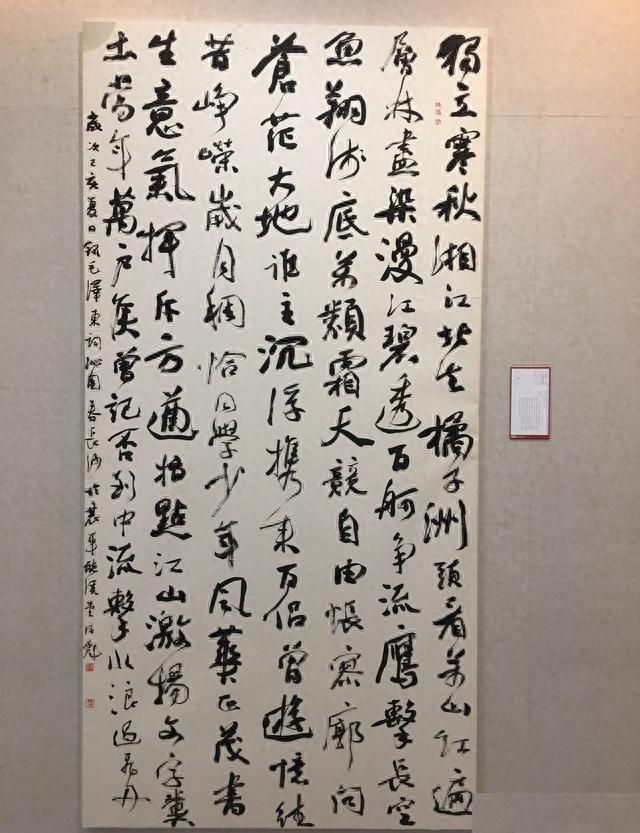 獨立寒秋湘江北去橘子洲頭看萬山紅遍
層林盡染漫江碧透百舸争流鷹擊長空
魚翔淺底萬類霜天競自由悵寥廓問
蒼茫大地誰主沉浮携來百侣曾遊憶往
昔崢嶸歲月稠恰同學少年風華正茂書
生意氣揮斥方遒指點江山激揚文字糞
土當年萬户侯曾記否到中流擊水浪遏飛舟
歲次己亥夏日錄毛澤東詞沁園春長沙於